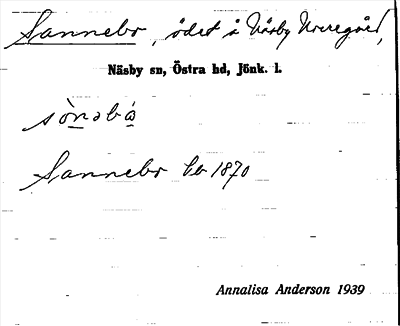 Sannebo, ödet å Näsby Norregård,
Näsby sn, Östra hd, Jönk. l.
sònəbó
Sannebo kb 1870
Annalisa Anderson 1939